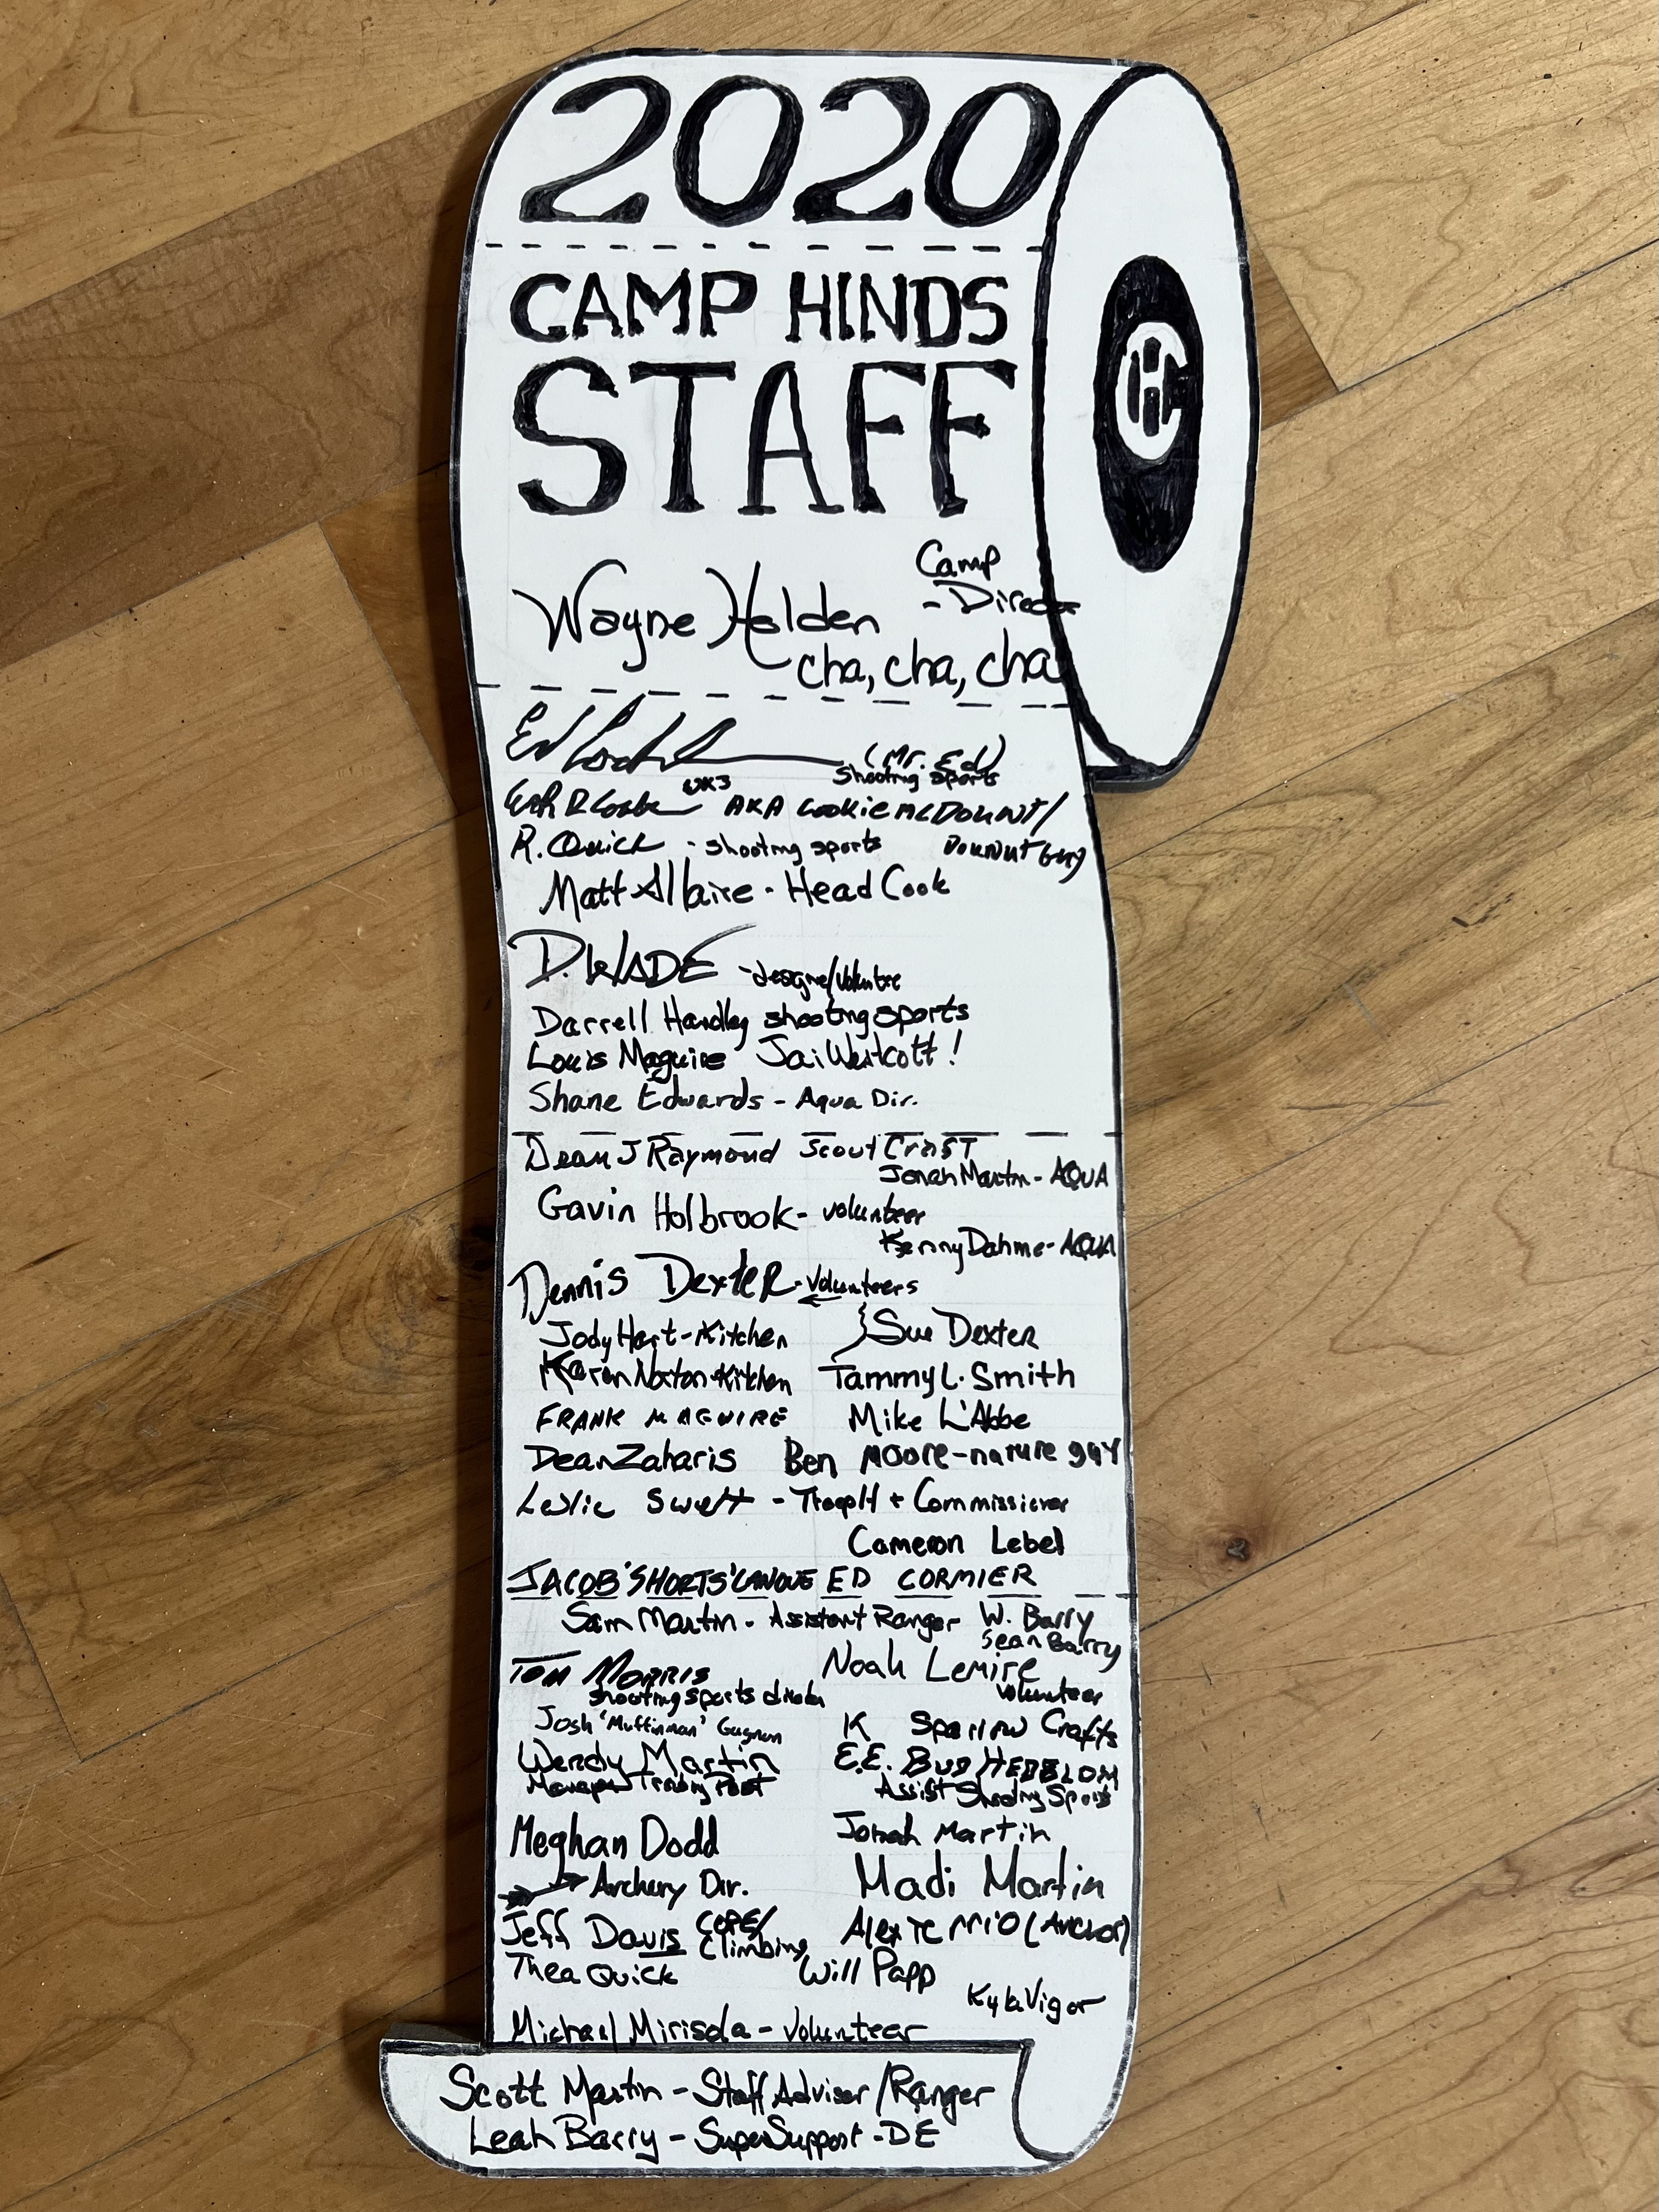 2020
CAMP HINDS
STAFF
Camp
Wayne Holden - Director
cha, cha, cha
Ed (Mr. Ed)
shooting sports
AKA Cookie McDounut/
R. Quick - shooting sports Dounut Guy
Matt Allaire - Head Cook
D. WADE -designer/volunteer
Darrell Handley shooting sports
Louis Maguire Jai Westcott!
Shane Edwards - Aqua Dir.
Dean J Raymond Scout Craft
Jonah Martin - AQUA
Gavin Holbrook - volunteer
Kenny Dahms - AQUA
Dennis Dexter - volunteers
Jody Hart - Kitchen } Sue Dexter
Karen Norton - Kitchen Tammy L. Smith
FRANK MAGUIRE Mike L'Abbe
Dean Zaharis Ben Moore - nature guy
Leslie Swett - Troop H + Commissioner
Cameron Lebel
JACOB 'SHORTS' CANOUE ED CORMIER
Sam Martin - Assistant Ranger W. Barry
Sean Barry
TOM MORRIS Noah Lemire
shooting sports director volunteer
Josh 'Muffinman' Gagnon K Sparrow Crafts
Wendy Martin E.E. BUD HEDBLOM
Manager Trading Post Assist Shooting Sports
Meghan Dodd Jonah Martin
Archery Dir. Madi Martin
Jeff Davis COPE/ Alex (Archor)
Climbing
Thea Quick Will Papp
Kyla Vigor
Michael Mirisola - Volunteer
Scott Martin - Staff Advisor/Ranger
Leah Barry - SuperSupport - DE